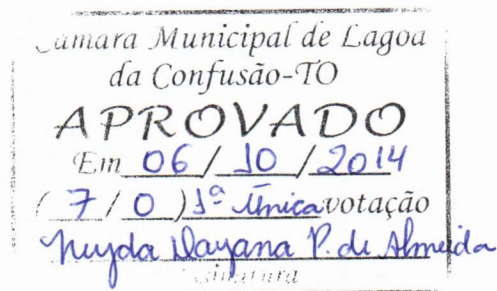 Câmara Municipal de Lagoa
da Confusão-TO
APROVADO
Em 06 / 10 / 2014
( 7 / 0 ) 1ª Única votação
Neyda Dayana P. de Almeida
Assinatura